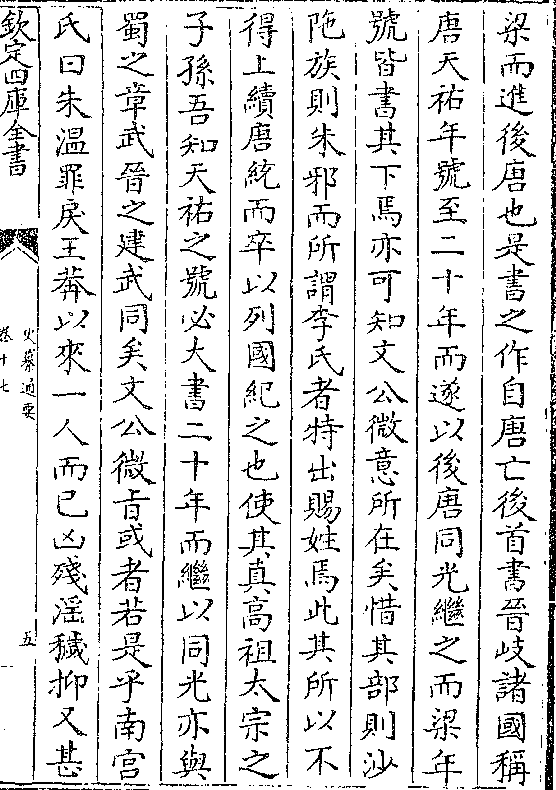 梁而進後唐也是書之作自唐亡後首書晉岐諸國稱
唐天祐年號至二十年而遂以後唐同光繼之而梁年
號皆書其下焉亦可知文公微意所在矣惜其部則沙
陁族則朱邪而所謂李氏者特出賜姓焉此其所以不
得上續唐統而卒以列國紀之也使其真高祖太宗之
子孫吾知天祐之號必大書二十年而繼以同光亦與
蜀之章武晉之建武同矣文公微旨或者若是乎南宮
氏曰朱溫罪戾王莽以來一人而已凶殘淫穢抑又甚
欽定四庫全書
史纂通要
卷十七
五